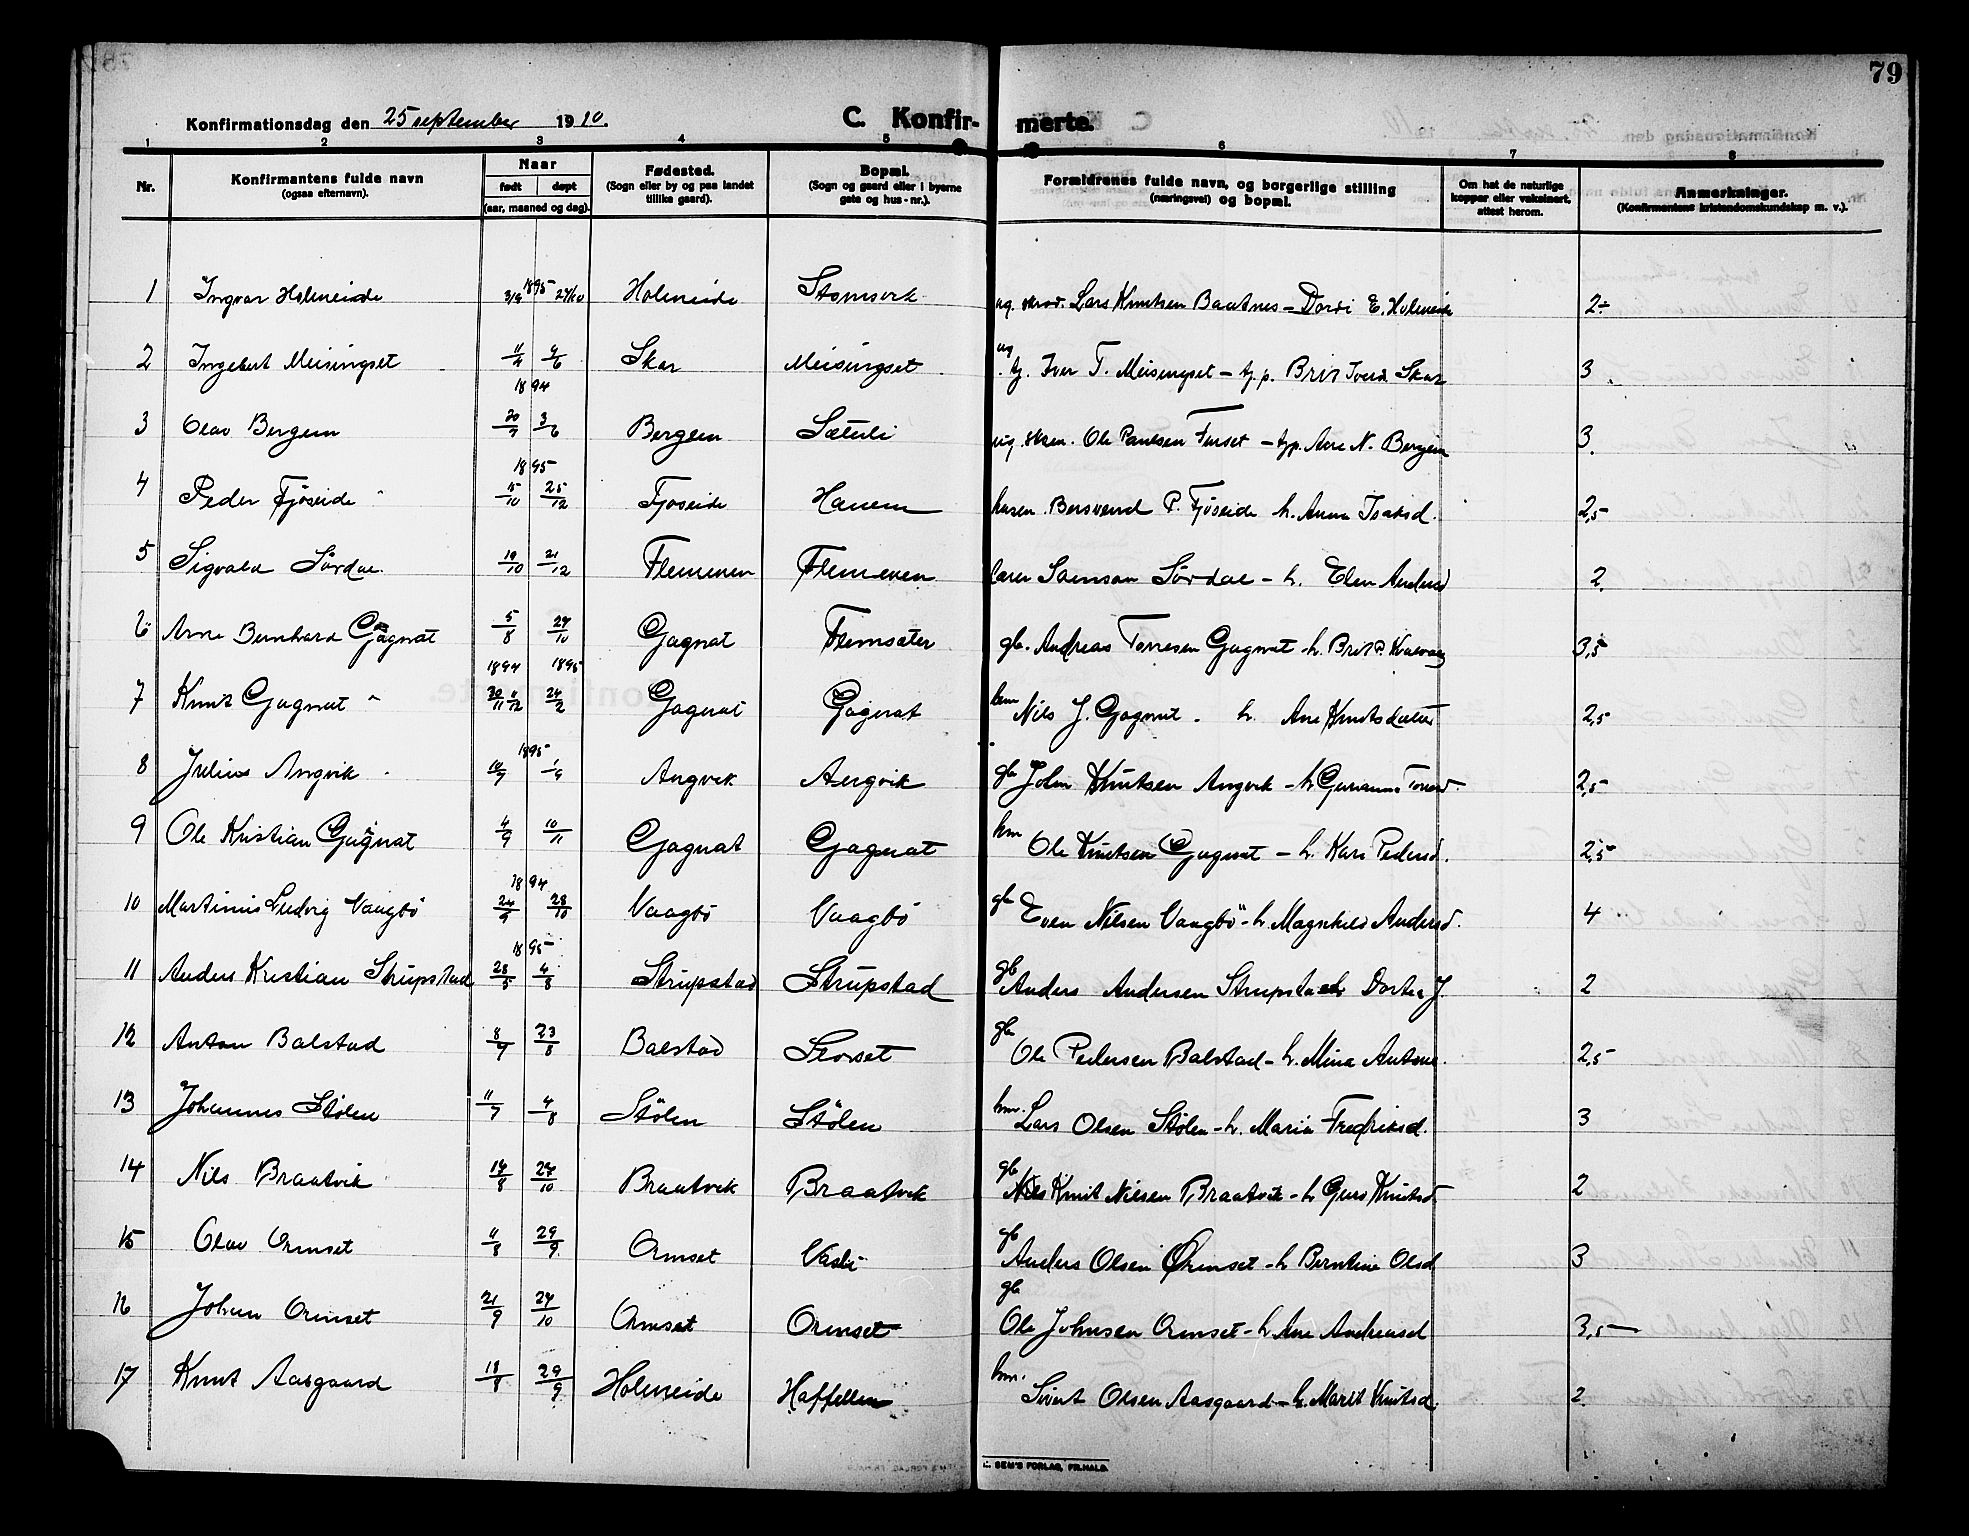 79
Konfirmationsdag den 25 september 1910.
C. Konfirmerte.
1 2 3 4 5 6 7 8
Nr.
Konfirmantens fulde navn (ogsaa efternavn).
Naar født døpt (aar, maaned og dag).
Fødested. (Sogn eller by og paa landet tillike gaard).
Bopæl. (Sogn og gaard eller i byerne gate og hus-nr.).
Forældrenes fulde navn, og borgerlige stilling (næringsvei) og bopæl.
Om hat de naturlige kopper eller vaksinert, attest herom.
Anmerkninger. (Konfirmantens kristendomskundskap m. v.).
1895
1 Ingvar Holmeide 3/9 27/10 Holmeide Stomsvik ug. Lars Knutsen Baatnes - Dordi E. Holmeide 2÷
2 Ingebert Meisingset 11/4 4/6 Skar Meisingset ug. tj. Iver T. Meisingset - tj. p. Brit Iversd. Skar 3
1894
3 Olav Bergem 20/7 3/6 Bergem Sætuli ug. Ole Paulsen Furset - tjp. Ane N. Bergem 3.
1895
4 Peder Fjöseide 15/10 25/12 Fjoseide Hanem Bersvend P. Fjöseide h. Anna Isaksd. 2,5
5 Sigvald Sørdal. 19/10 21/12 Flemmen Flemmen Samson Sørdal - h. Elen Andersd 2
6 Arne Bernhard Gagnat 5/8 27/10 Gagnat Flemsæter gb. Andreas Torresen Gagnat - h. Brit P. 3,5
1894 1895
7 Knut Gagnat 30/11 11/12 24/2 Gagnat Gagnat Nils J. Gagnat. h. Ane Knutsdatter 2,5
1895
8 Julius Angvik 10/7 1/9 Angvik Angvik gb John Knutsen Angvik - h Gurianna Toresd. 2,5
9 Ole Kristian Gagnat 4/9 10/11 Gagnat Gagnat hm Ole Knutsen Gagnat - h. Kari Pedersd. 2,5
1894
10 Martinus Ludvig Vaagbö 24/9 28/10 Vaagbö Vaagbö gb Even Nilsen Vaagbö - h Magnhild Andersd. 4
1895
11 Anders Kristian Strupstad 28/5 4/8 Strupstad Strupstad gb Anders Andersen Strupstad h Dortea J. 2
12 Anton Balstad 8/7 23/8 Balstad gb Ole Pedersen Balstad - h. Mina Antons 2,5
13 Johannes Stølen 11/7 4/8 Stølen Stølen hm. Lars Olsen Stølen - h. Maria Fredriksd. 3
14 Nils Braatvik 14/8 27/10 Braatvik Braatvik gb Knut Nilsen Braatvik - h Guro Knutsd. 2
15 Olav Ormset 11/8 29/9 Ormset Vasli gb Anders Olsen Ormset - h Berntine Olsd 3
16 Johan Ormset 21/9 27/10 Ormset Ormset gb Ole Johnsen Ormset - h Ane Andreasd 3,5
17 Knut Aasgaard 18/8 29/9 Holmeide Haffellen hm. Sivert Olsen Aasgaard - h. Marit Knutsd. 2
SEM'S FORLAG, FR.HALD.